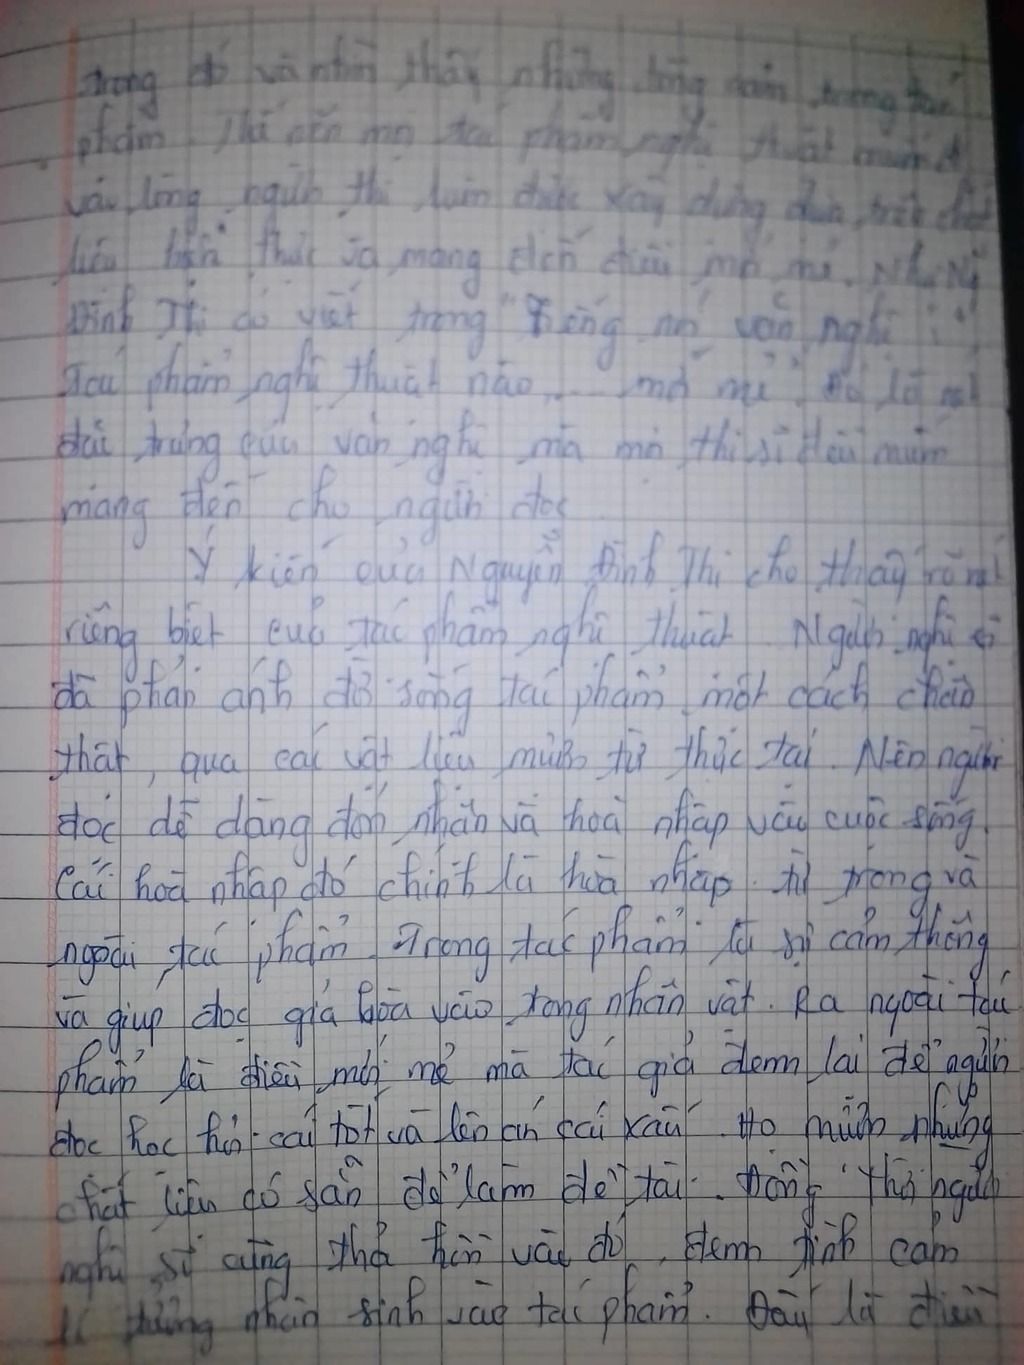 trong đó và nhìn thấy những trong tác
phẩm. Thế nên mọi tác phẩm nghệ thuật muốn đi
vào lòng người thì luôn được xây dựng dựa trên chất
liệu hiện thực và mang đến điều mới mẻ. Như Ng
Đình Thi có viết trong "Tiếng nói văn nghệ": "
Tác phẩm nghệ thuật nào ... mới mẻ". Đó là
đặc trưng của văn nghệ mà mọi thi sĩ đều muốn
mang đến cho người đọc
Ý kiến của Nguyễn Đình Thi cho thấy rõ nét
riêng biệt của tác phẩm nghệ thuật. Người nghệ sĩ
đã phản ánh đời sống tác phẩm một cách chân
thật, qua các vật liệu mượn từ thực tại. Nên người
đọc dễ dàng đón nhận và hoà nhập vào cuộc sống.
Cái hoà nhập đó chính là hòa nhập từ trong và
ngoài tác phẩm. Trong tác phẩm là sự cảm thông
và giúp đọc giả hòa vào trong nhân vật. Ra ngoài tác
phẩm là điều mới mẻ mà tác giả đem lại để người
đọc học hỏi cái tốt và lên án cái xấu. Họ mượn những
chất liệu có sẵn để làm đề tài. Đồng thời người
nghệ sĩ cũng thả hồn vào đó, đem tình cảm
lí tưởng nhân sinh vào tác phẩm. Đây là điều